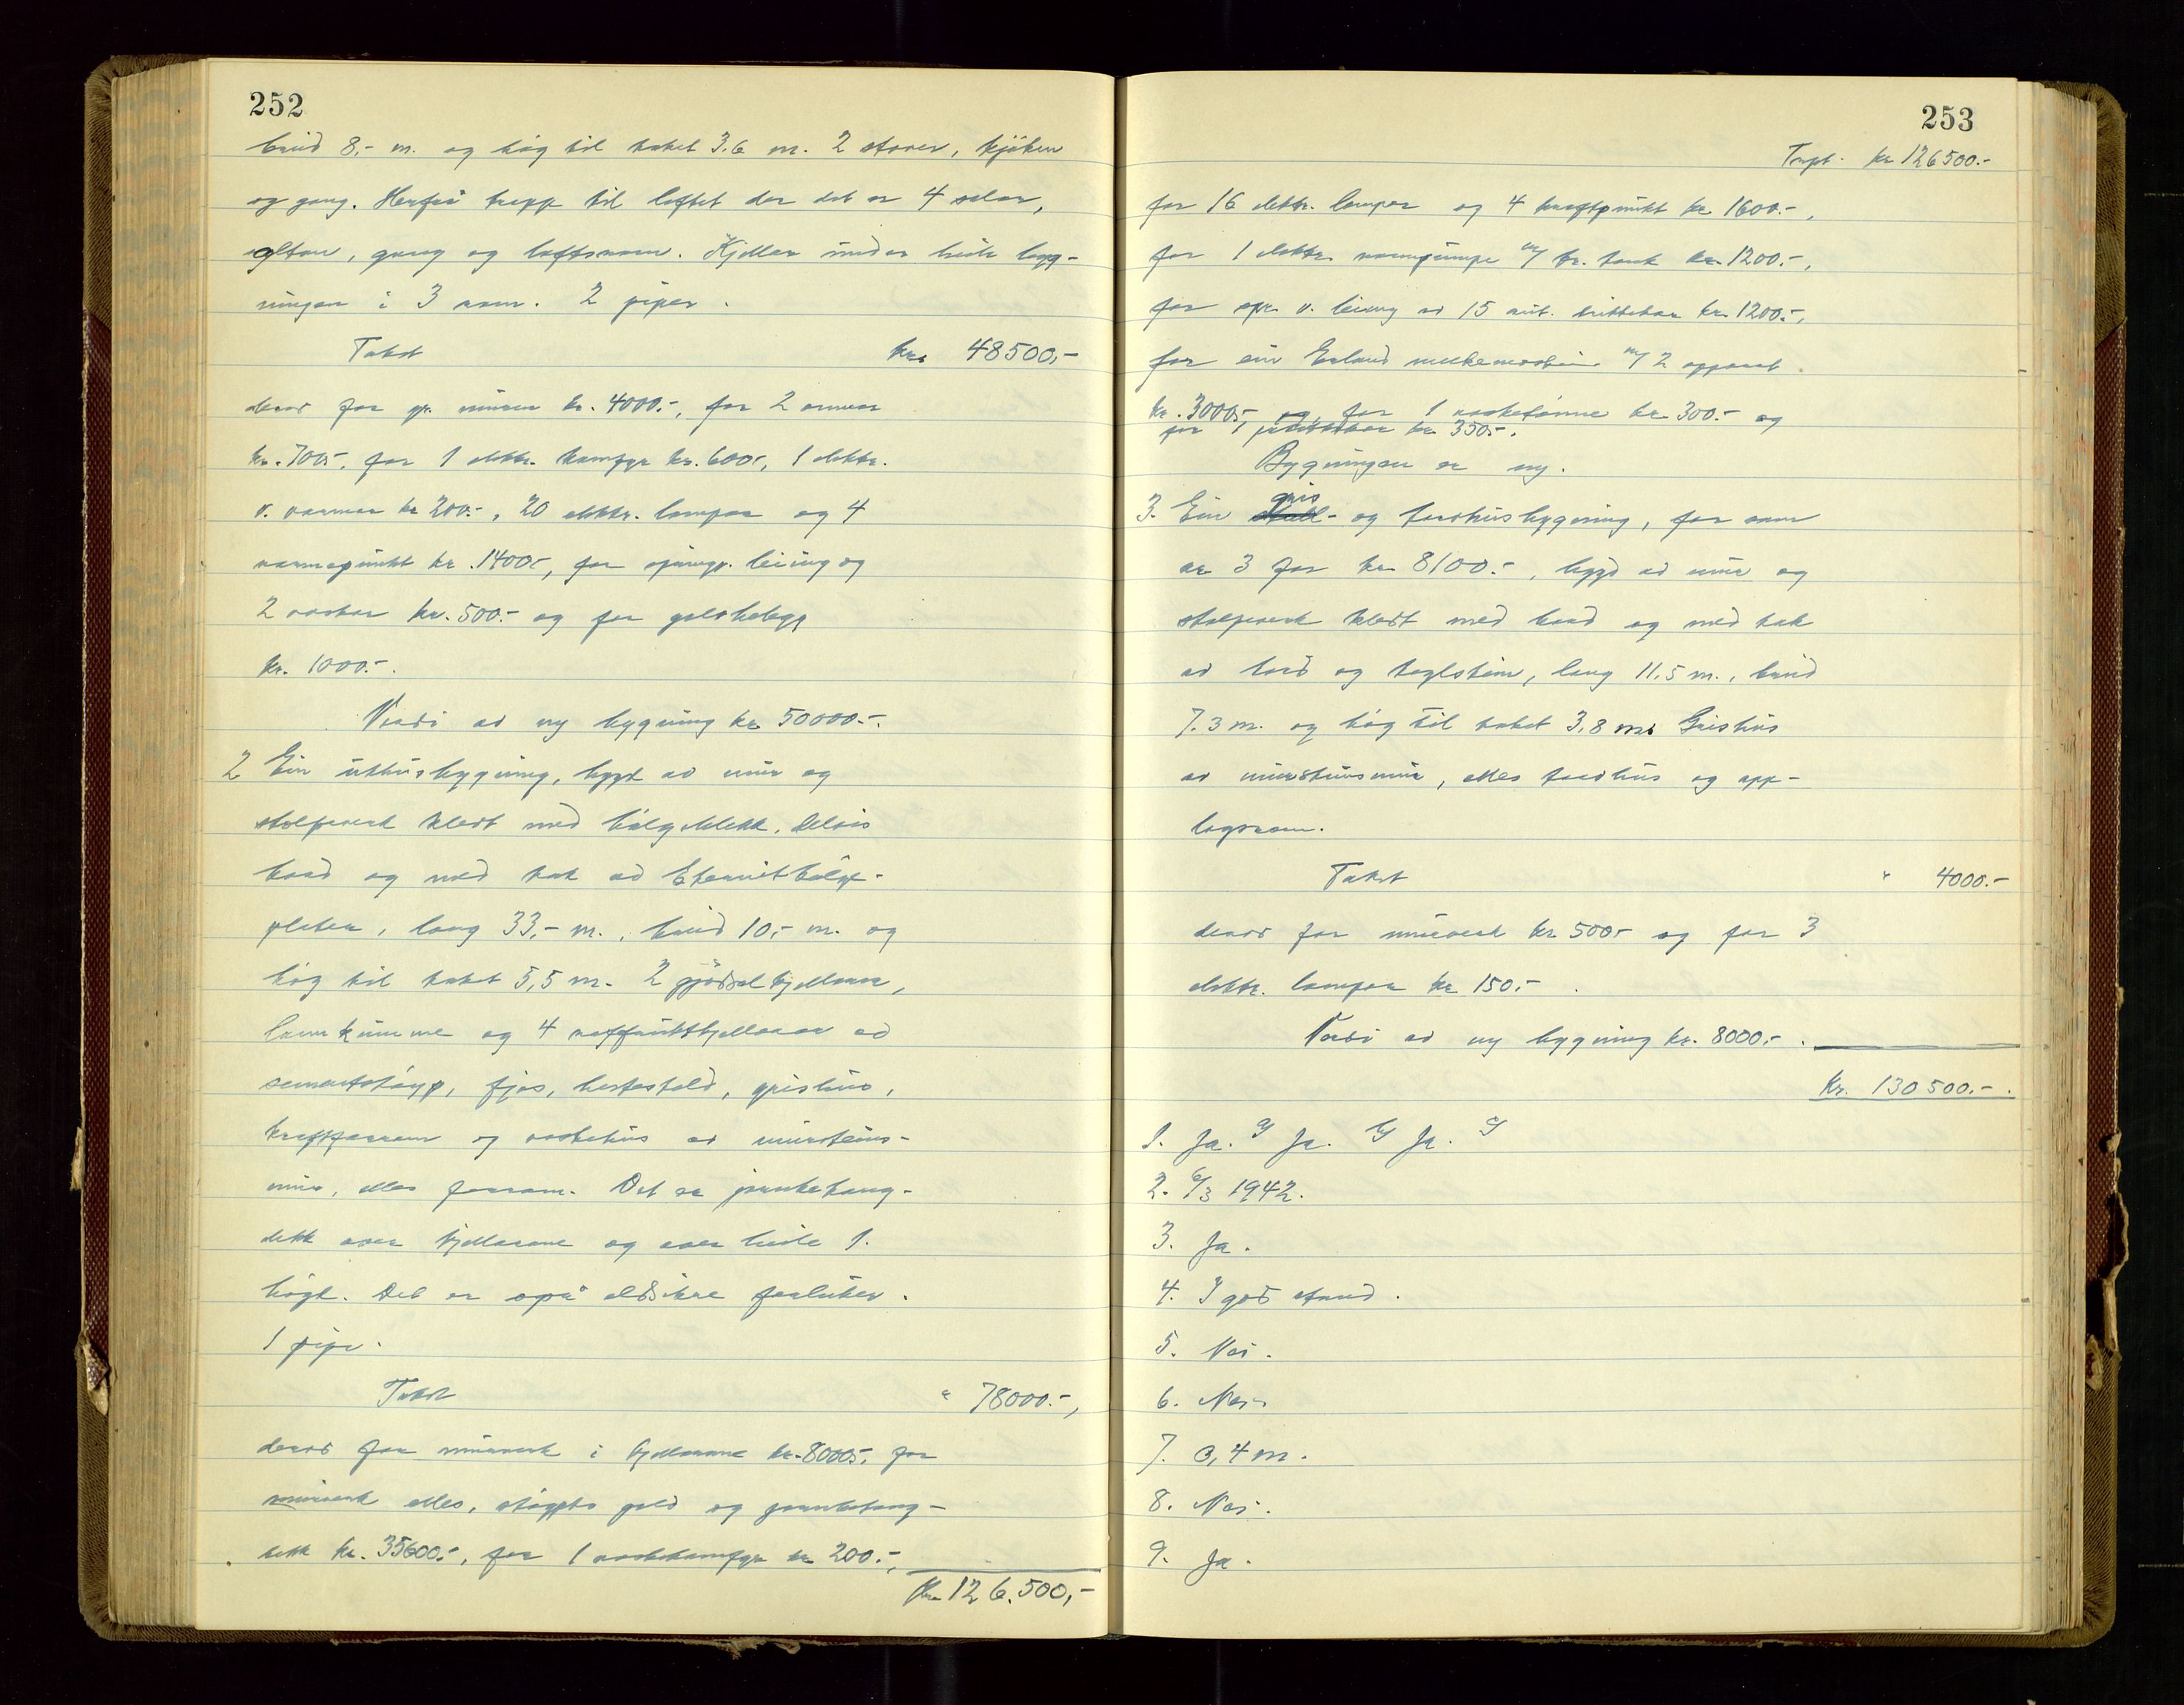 252
breid 8,- m. og høg til raket 3.6 m. 2 stover, kjøken
og gang. Herfrå trapp til loftet der det er 4 solar,
altan, gang og loftsrom. Kjellar under heile bygg-
ningen i 3 rom. 2 piper.
Takst kr. 48500,-
derav for gr. muren kr. 4000.-, for 2 omnar
kr. 700.-, for 1 elektr. komfyr kr. 600.-, 1 elektr.
v. varmar kr 200.-, 20 elektr. lampor og 4
varmepunkt kr. 1400.-, for spring. leiing og
2 vaskar kr. 500.- og for golvbelegg
kr. 1000.-.
Verdi av ny bygning kr 50000.-.
2 Ein uthusbygning, bygd av mur og
stolpeverk kledt med bølgeblekk, delvis
bord og med tak av Eternitbølge-
plater, lang 33,- m., breid 10,- m. og
høg til raket 5,5 m. 2 gjødselkjellarar,
landkumme og 4 rotfruktkjellarar av
sementstøyp, fjos, hestestald, grishus,
kraftforrom og vaskehus av mursteins-
mur, elles forrom. Det er jernbetong-
dekk over kjellarane og over heile 1.
høgd. Det er også eldsikre forluker.
1 pipe.
Takst " 78000.-,
derav for murverk i kjellarane kr. 8000.-, for
murverk elles, støypte golv og jernbetong-
dekk kr. 35600.-, for 1 vaskekomfyr kr 200.-,
Kr. 126.500,-
253
Trspt. kr 126500.-
for 16 elektr. lampor og 4 kraftpunkt kr 1600.-,
for 1 elektr. vasspumpe m/ tr. tank kr. 1200.-,
for spr. v. leiing av 15 aut. drikkekar kr. 1200.-,
for ein Erland melkemaskin m/ 2 apparat
kr. 3000.-, og for 1 vasketønne kr. 300.- og
for 1 kr 350.-.
Bygningen er ny.
gris
3. Ein stall- og torvhusbygning, for som
nr 3 for kr 8100.-, bygd av mur og
stolpeverk kledt med bord og med tak
av bord og taglstein, lang 11,5 m., breid
7.3 m. og høg til raket 3,8 m. Grishus
av mursteinsmur, elles torvhus og opp-
lagsrom.
Takst " 4000.-
derav for murverk kr 500.- og for 3
elektr. lampor kr 150.-.
Verdi av ny bygning kr. 8000,-.
Kr. 130500.-.
1. Ja. a/ Ja. b/ Ja. c/
2. 6/3 1942.
3. Ja.
4. I god stand.
5. Nei.
6. Nei.
7. 0,4 m.
8. Nei.
9. Ja.